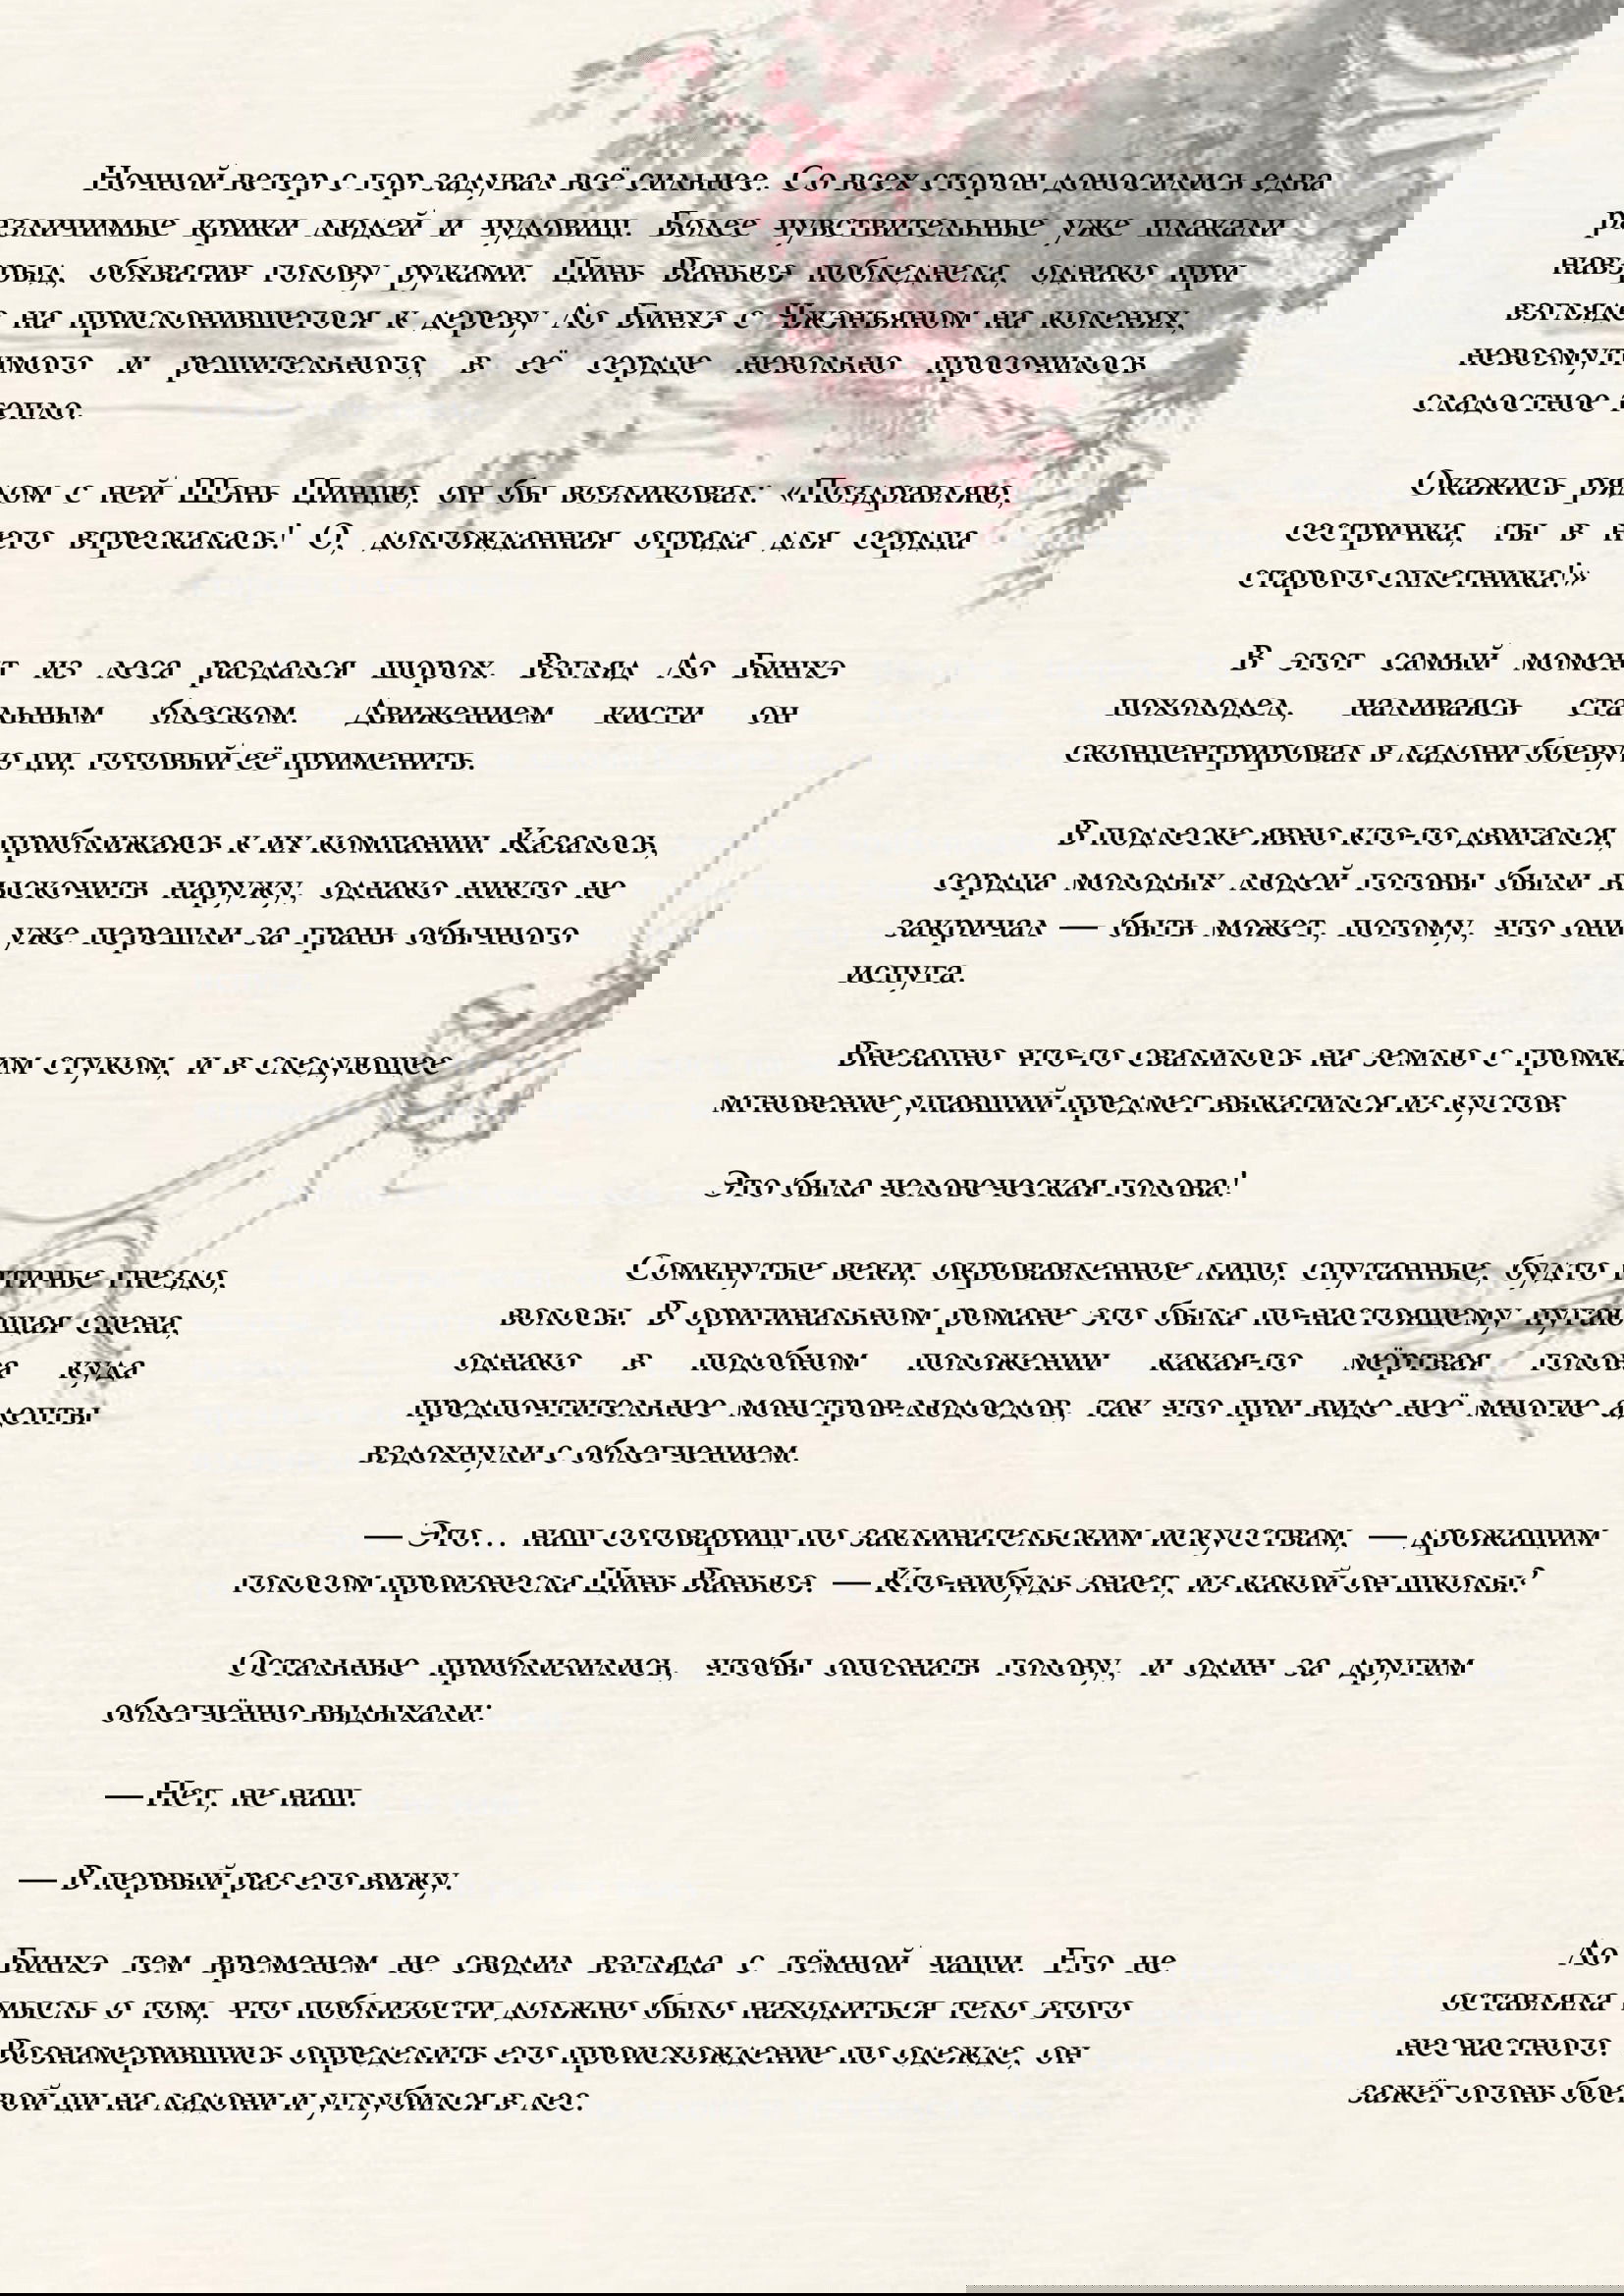 Ночной ветер с гор задувал всё сильнее. Со всех сторон доносились едва
различимые крики людей и чудовищ. Более чувствительные уже плакали
навзрыд, обхватив голову руками. Цинь Ваньюэ побледнела, однако при
взгляде на прислонившегося к дереву Ло Бинхэ с Чжэнъяном на коленях,
невозмутимого и решительного, в её сердце невольно просочилось
сладостное тепло.
Окажись рядом с ней Шэнь Цинцю, он бы возликовал: «Поздравляю,
сестричка, ты в него втрескалась! О, долгожданная отрада для сердца
старого сплетника!»
В этот самый момент из леса раздался шорох. Взгляд Ло Бинхэ
похолодел, наливаясь стальным блеском. Движением кисти он
сконцентрировал в ладони боевую ци, готовый её применить.
В подлеске явно кто-то двигался, приближаясь к их компании. Казалось,
сердца молодых людей готовы были выскочить наружу, однако никто не
закричал — быть может, потому, что они уже перешли за грань обычного
испуга.
Внезапно что-то свалилось на землю с громким стуком, и в следующее
мгновение упавший предмет выкатился из кустов.
Это была человеческая голова!
Сомкнутые веки, окровавленное лицо, спутанные, будто птичье гнездо,
волосы. В оригинальном романе это была по-настоящему пугающая сцена,
однако в подобном положении какая-то мёртвая голова куда
предпочтительнее монстров-людоедов, так что при виде неё многие адепты
вздохнули с облегчением.
— Это… наш сотоварищ по заклинательским искусствам, — дрожащим
голосом произнесла Цинь Ваньюэ. — Кто-нибудь знает, из какой он школы?
Остальные приблизились, чтобы опознать голову, и один за другим
облегчённо выдыхали:
— Нет, не наш.
— В первый раз его вижу.
Ло Бинхэ тем временем не сводил взгляда с тёмной чащи. Его не
оставляла мысль о том, что поблизости должно было находиться тело этого
несчастного. Вознамерившись определить его происхождение по одежде, он
зажёг огонь боевой ци на ладони и углубился в лес.